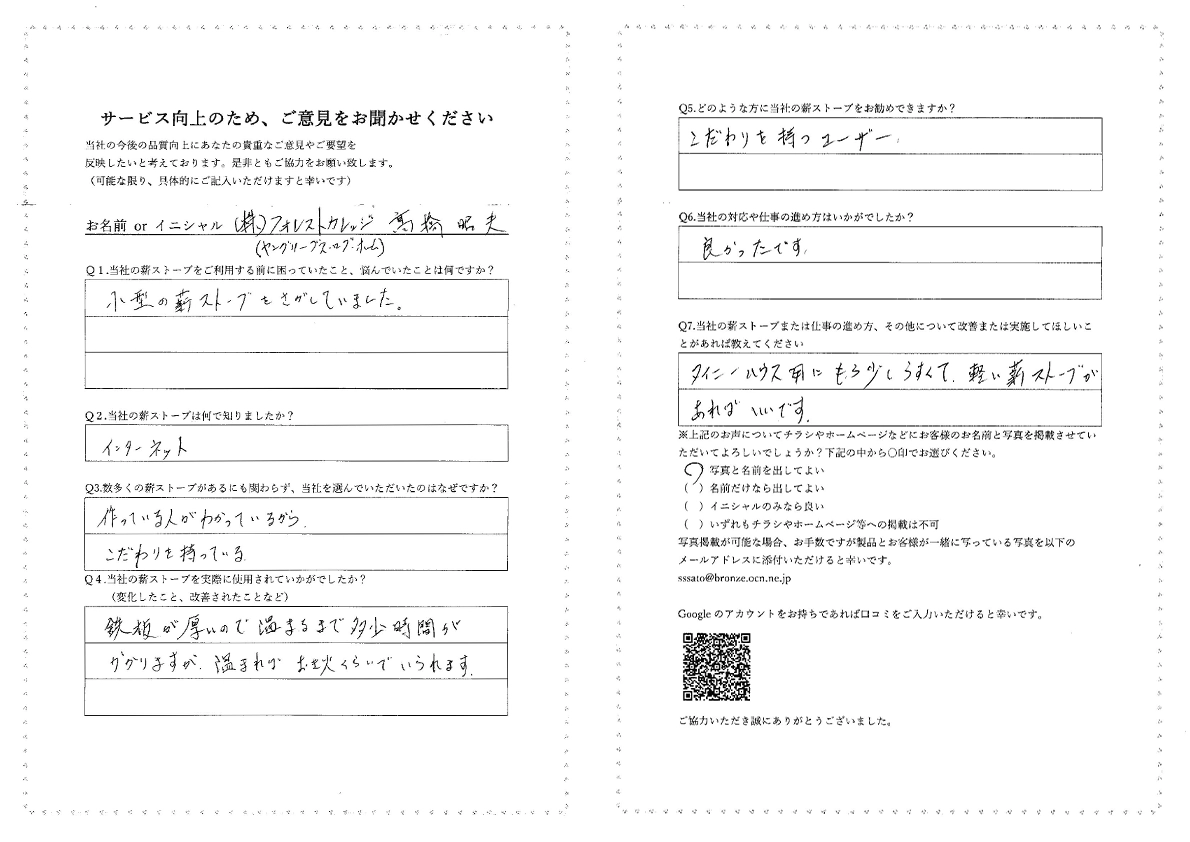 サービス向上のため、ご意見をお聞かせください
当社の今後の品質向上にあなたの貴重なご意見やご要望を
反映したいと考えております。是非ともご協力をお願い致します。
（可能な限り、具体的にご記入いただけますと幸いです）
お名前 or イニシャル (株)フォレストカレッジ 髙橋 昭夫
(ヤングリーブス・ログ・ホーム)
Q１.当社の薪ストーブをご利用する前に困っていたこと、悩んでいたことは何ですか？
小型の薪ストーブをさがしていました。
Q２.当社の薪ストーブは何で知りましたか？
インターネット
Q3.数多くの薪ストーブがあるにも関わらず、当社を選んでいただいたのはなぜですか？
作っている人がわかっているから.
こだわりを持っている.
Q４.当社の薪ストーブを実際に使用されていかがでしたか？
（変化したこと、改善されたことなど）
鉄板が厚いので温まるまで多少時間が
かかりますが、温まれば くらいでいられます.
Q5.どのような方に当社の薪ストーブをお勧めできますか？
こだわりを持つユーザー.
Q6.当社の対応や仕事の進め方はいかがでしたか？
良かったです.
Q7.当社の薪ストーブまたは仕事の進め方、その他について改善または実施してほしいこ
とがあれば教えてください
タイニーハウス用にもう少しうすくて、軽い薪ストーブが
あればいいです.
※上記のお声についてチラシやホームページなどにお客様のお名前と写真を掲載させてい
ただいてよろしいでしょうか？下記の中から〇印でお選びください。
(○) 写真と名前を出してよい
(　) 名前だけなら出してよい
(　) イニシャルのみなら良い
(　) いずれもチラシやホームページ等への掲載は不可
写真掲載が可能な場合、お手数ですが製品とお客様が一緒に写っている写真を以下の
メールアドレスに添付いただけると幸いです。
sssato@bronze.ocn.ne.jp
Google のアカウントをお持ちであれば口コミをご入力いただけると幸いです。
ご協力いただき誠にありがとうございました。